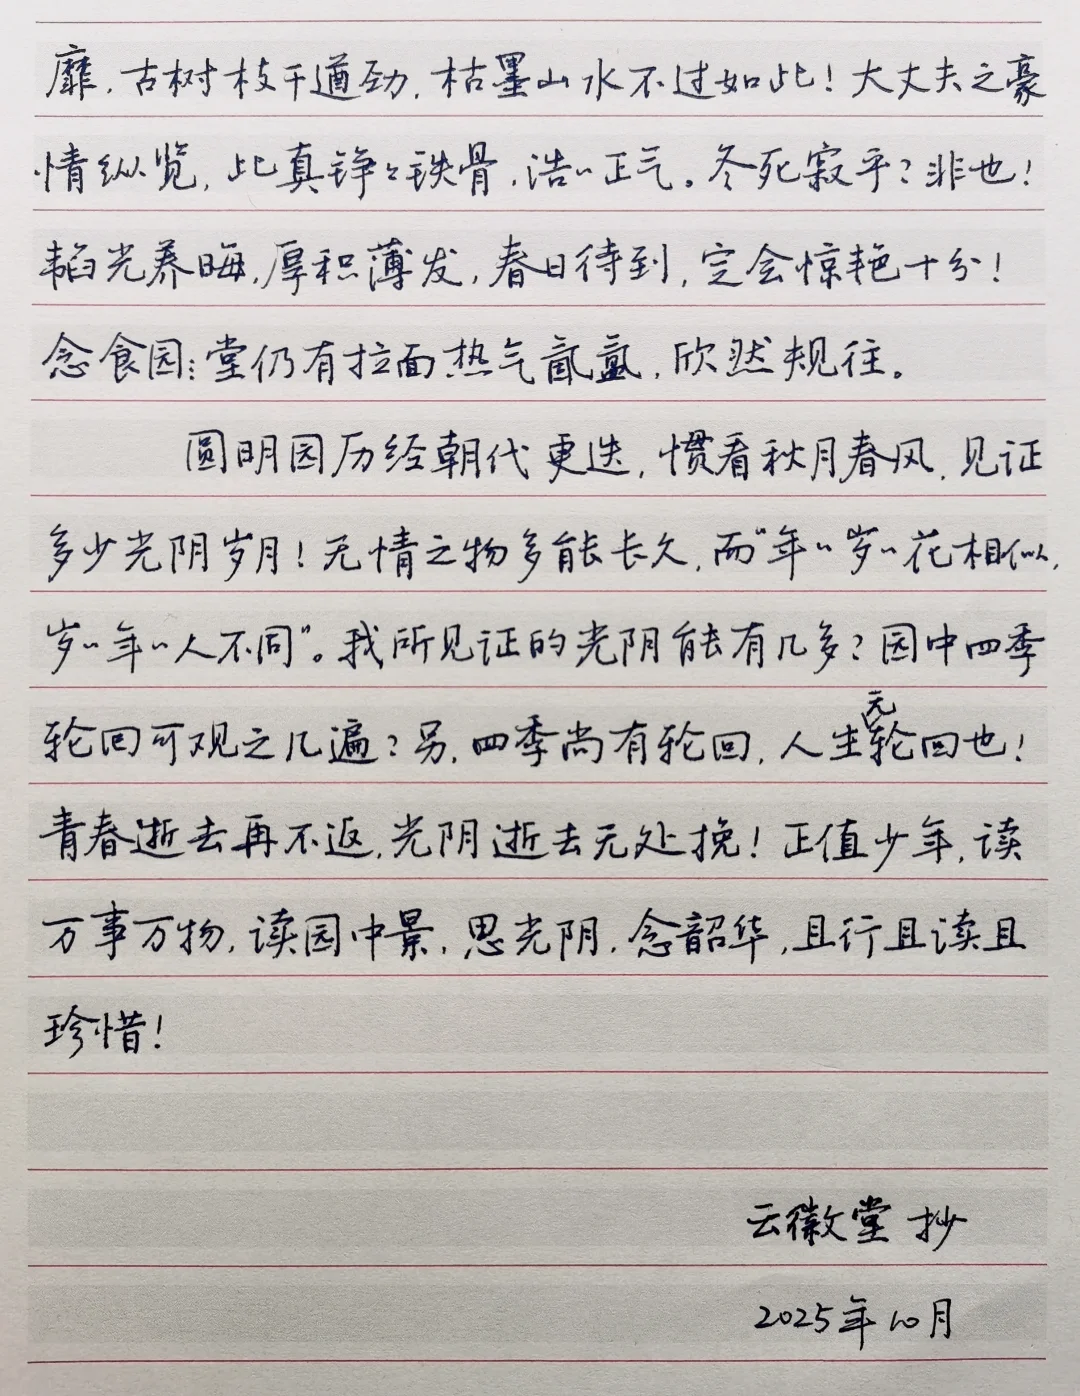 靡，古树枝干遒劲，枯墨山水不过如此！大丈夫之豪
情纵览，此真铮々铁骨，浩〃正气。冬死寂乎？非也！
韬光养晦，厚积薄发，春日待到，定会惊艳十分！
念食园：堂仍有拉面热气氤氲，欣然规往。
圆明园历经朝代更迭，惯看秋月春风，见证
多少光阴岁月！无情之物多能长久，而“年〃岁〃花相似，
岁〃年〃人不同”。我所见证的光阴能有几多？园中四季
轮回可观之几遍？另，四季尚有轮回，人生无轮回也！
青春逝去再不返，光阴逝去无处挽！正值少年，读
万事万物，读园中景，思光阴，念韶华，且行且读且
珍惜！
云徽堂 抄
2025年10月